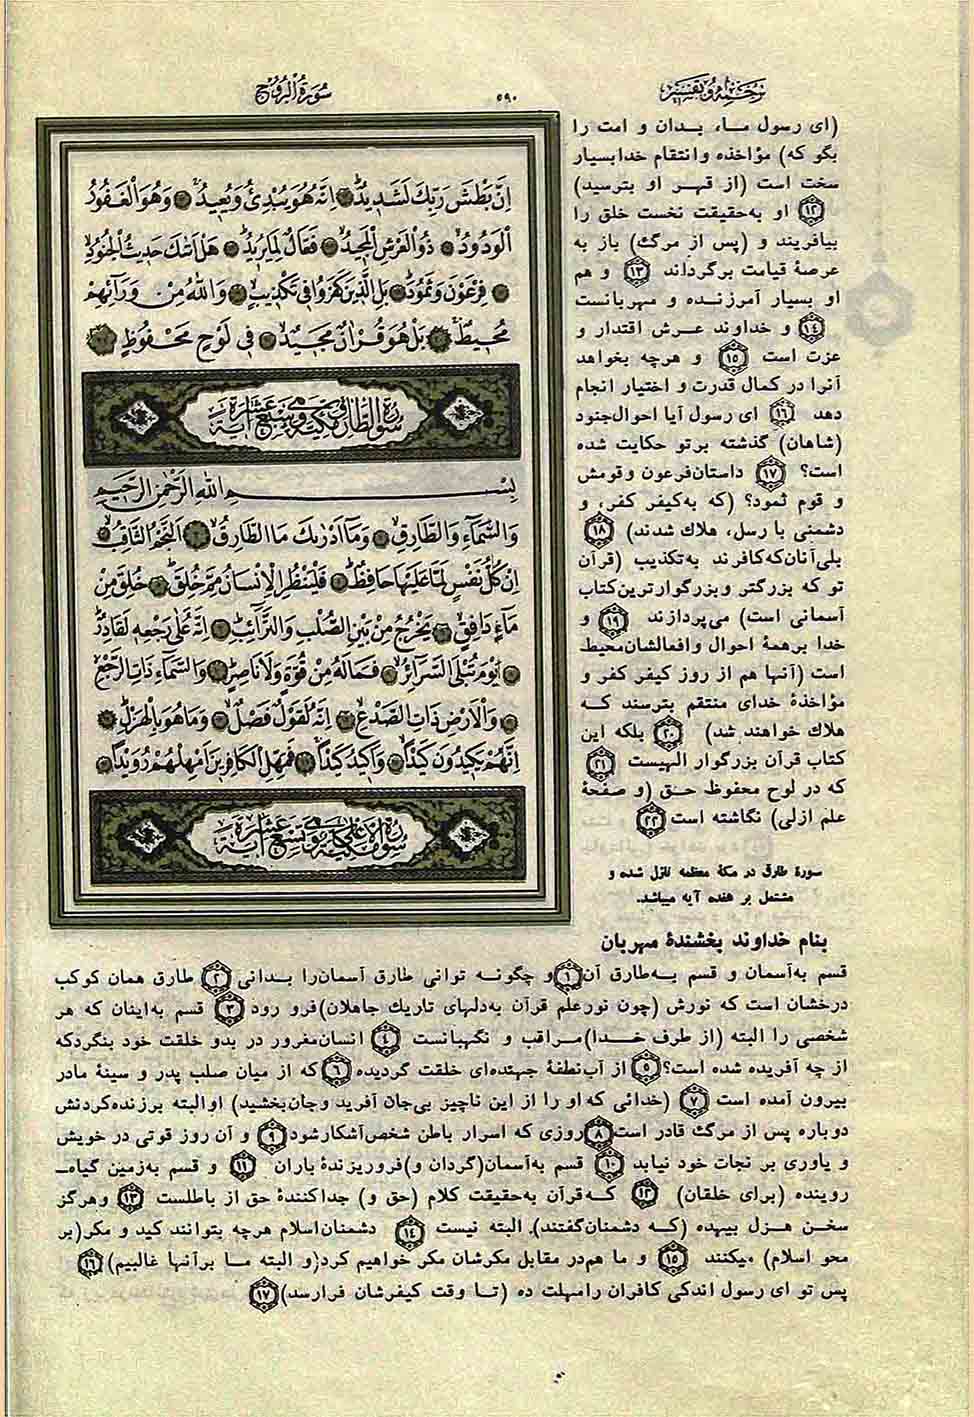 ترجمه و تفسیر
۵۹۰
سورة البروج
(ای رسول ما، بدان و امت را
بگو که) مؤاخذه و انتقام خدا بسیار
سخت است (از قهر او بترسید)
۱۲ او به‌حقیقت نخست خلق را
بیافریند و (پس از مرگ) باز به
عرصهٔ قیامت برگرداند ۱۳ و هم
او بسیار آمرزنده و مهربانست
۱۴ و خداوند عرش اقتدار و
عزت است ۱۵ و هرچه بخواهد
آنرا در کمال قدرت و اختیار انجام
دهد ۱۶ ای رسول آیا احوال جنود
(شاهان) گذشته برتو حکایت شده
است؟ ۱۷ داستان فرعون و قومش
و قوم ثمود؟ (که به‌کیفر کفر، و
دشمنی با رسل، هلاک شدند) ۱۸
بلی آنان‌که کافرند به‌تکذیب (قرآن
تو که بزرگتر و بزرگوارترین کتاب
آسمانی است) می‌پردازند ۱۹ و
خدا برهمهٔ احوال و افعالشان محیط
است (آنها هم از روز کیفر کفر و
مؤاخذهٔ خدای منتقم بترسند که
هلاک خواهند شد) ۲۰ بلکه این
کتاب قرآن بزرگوار الهیست ۲۱
که در لوح محفوظ حق (و صفحهٔ
علم ازلی) نگاشته است ۲۲
سورهٔ طارق در مکهٔ معظمه نازل شده و
مشتمل بر هفده آیه میباشد.
بنام خداوند بخشندهٔ مهربان
إِنَّ بَطْشَ رَبِّكَ لَشَدِيدٌ إِنَّهُ هُوَ يُبْدِئُ وَيُعِيدُ وَهُوَ الْغَفُورُ
الْوَدُودُ ذُو الْعَرْشِ الْمَجِيدُ فَعَّالٌ لِمَا يُرِيدُ هَلْ أَتٰكَ حَدِيثُ الْجُنُودِ
فِرْعَوْنَ وَثَمُودَ بَلِ الَّذِينَ كَفَرُوا فِي تَكْذِيبٍ وَاللّٰهُ مِنْ وَرَائِهِمْ
مُحِيطٌ بَلْ هُوَ قُرْآنٌ مَجِيدٌ فِي لَوْحٍ مَحْفُوظٍ
سورة الطارق مكية وهي سبع عشرة آية
بِسْمِ اللّٰهِ الرَّحْمٰنِ الرَّحِيمِ
وَالسَّمَاءِ وَالطَّارِقِ وَمَا أَدْرٰيكَ مَا الطَّارِقُ النَّجْمُ الثَّاقِبُ
إِنْ كُلُّ نَفْسٍ لَمَّا عَلَيْهَا حَافِظٌ فَلْيَنْظُرِ الْإِنْسَانُ مِمَّ خُلِقَ خُلِقَ مِنْ
مَاءٍ دَافِقٍ يَخْرُجُ مِنْ بَيْنِ الصُّلْبِ وَالتَّرَائِبِ إِنَّهُ عَلَى رَجْعِهِ لَقَادِرٌ
يَوْمَ تُبْلَى السَّرَائِرُ فَمَا لَهُ مِنْ قُوَّةٍ وَلَا نَاصِرٍ وَالسَّمَاءِ ذَاتِ الرَّجْعِ
وَالْأَرْضِ ذَاتِ الصَّدْعِ إِنَّهُ لَقَوْلٌ فَصْلٌ وَمَا هُوَ بِالْهَزْلِ
إِنَّهُمْ يَكِيدُونَ كَيْدًا وَأَكِيدُ كَيْدًا فَمَهِّلِ الْكَافِرِينَ أَمْهِلْهُمْ رُوَيْدًا
سورة الاعلى مكية وهي تسع عشرة آية
قسم به‌آسمان و قسم به‌طارق آن ۱ و چگونه توانی طارق آسمان‌را بدانی ۲ طارق همان کوکب
درخشان است که نورش (چون نور علم قرآن به‌دلهای تاریک جاهلان) فرو رود ۳ قسم به‌اینان که هر
شخصی را البته (از طرف خدا) مراقب و نگهبانست ۴ انسان مغرور در بدو خلقت خود بنگرد که
از چه آفریده شده است؟ ۵ از آب نطفهٔ جهنده‌ای خلقت گردیده ۶ که از میان صلب پدر و سینهٔ مادر
بیرون آمده است ۷ (خدائی که او را از این ناچیز بی‌جان آفرید و جان بخشید) او البته برزنده کردنش
دوباره پس از مرگ قادر است ۸ روزی که اسرار باطن شخص آشکار شود ۹ و آن روز قوتی در خویش
و یاوری بر نجات خود نیابد ۱۰ قسم به‌آسمان (گردان و) فروریزندهٔ باران ۱۱ و قسم به‌زمین گیاه‌ـ
روینده (برای خلقان) ۱۲ که قرآن به‌حقیقت کلام (حق و) جداکنندهٔ حق از باطلست ۱۳ و هرگز
سخن هزل بیهده (که دشمنان گفتند). البته نیست ۱۴ دشمنان اسلام هرچه بتوانند کید و مکر (بر
محو اسلام) میکنند ۱۵ و ما هم‌در مقابل مکرشان مکر خواهیم کرد (و البته ما برآنها غالبیم) ۱۶
پس تو ای رسول اندکی کافران را مهلت ده (تا وقت کیفرشان فرارسد) ۱۷